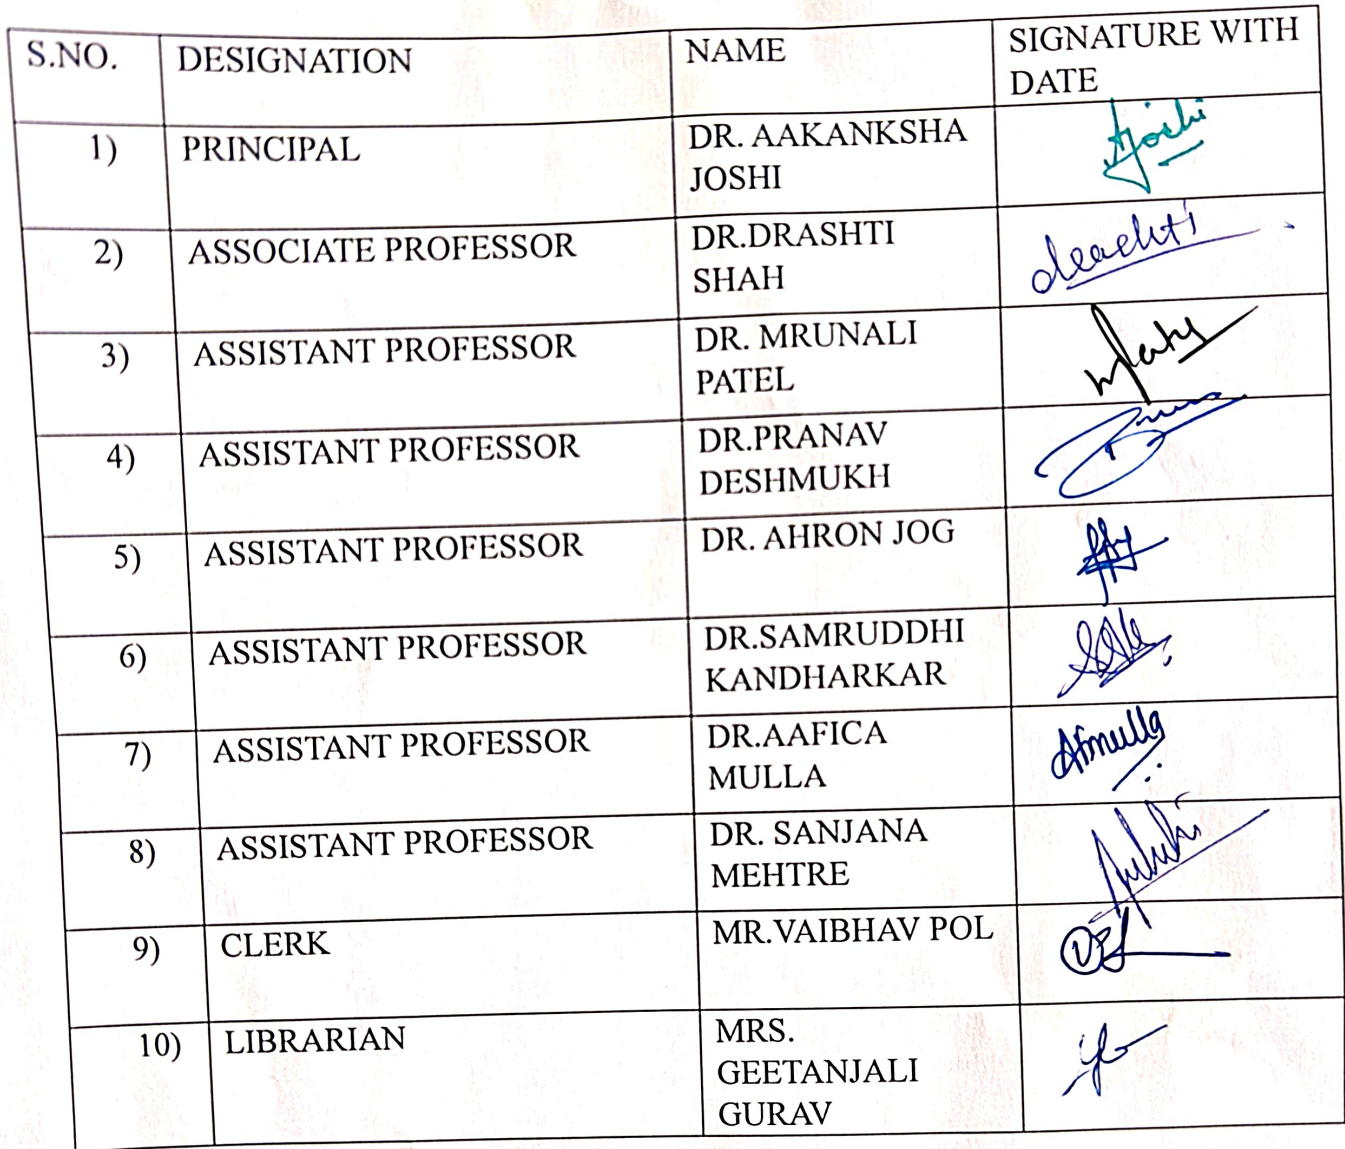 S.NO. DESIGNATION NAME SIGNATURE WITH
DATE
1) PRINCIPAL DR. AAKANKSHA
JOSHI
Ajoshi
2) ASSOCIATE PROFESSOR DR.DRASHTI
SHAH
3) ASSISTANT PROFESSOR DR. MRUNALI
PATEL
4) ASSISTANT PROFESSOR DR.PRANAV
DESHMUKH
5) ASSISTANT PROFESSOR DR. AHRON JOG
6) ASSISTANT PROFESSOR DR.SAMRUDDHI
KANDHARKAR
7) ASSISTANT PROFESSOR DR.AAFICA
MULLA
Afmulla
8) ASSISTANT PROFESSOR DR. SANJANA
MEHTRE
9) CLERK MR.VAIBHAV POL
10) LIBRARIAN MRS.
GEETANJALI
GURAV